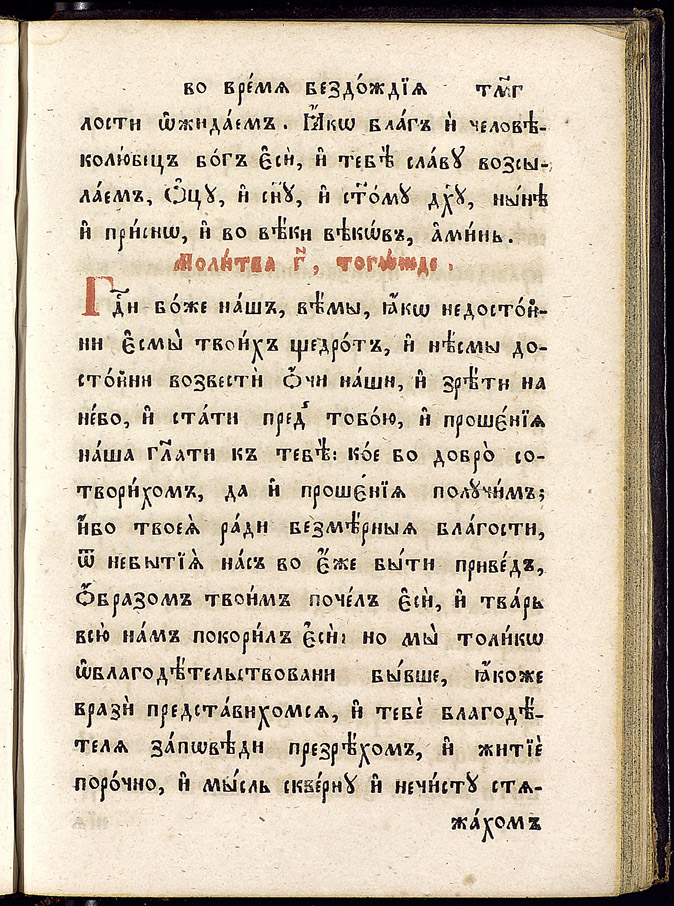 во вре́мѧ бездо́ждїѧ тм҃г
лости ѡ҆жида́емъ. Ꙗ҆́кѡ бла́гъ и҆ человѣ-
колю́бецъ бо́гъ є҆сѝ, и҆ тебѣ̀ сла́вꙋ возсы-
ла́ем, Ѻ҆ц҃ꙋ, и҆ сн҃ꙋ, и҆ ст҃о́мꙋ дх҃ꙋ, ны́нѣ
и҆ при́снѡ, и҆ во вѣ́ки вѣкѡ́въ, а҆ми́нь.
Моли́тва г҃, тогѡ́жде.
Гдⷭ҇и бо́же на́шъ, вѣ́мы, ꙗ҆́кѡ недосто́й-
ни є҆смы̀ твои́хъ щедро́тъ, и҆ нѣ́смы до-
сто́йни возвестѝ ѻ҆́чи на́ши, и҆ зрѣ́ти на
не́бо, и҆ ста́ти предꙿ тобо́ю, и҆ прошє́нїѧ
на́ша гл҃ати къ тебѣ̀: ко́е бо добро̀ со-
твори́хом, да и҆ прошє́нїѧ полꙋчи́мъ;
и҆́бо твоеѧ̀ ра́ди безмѣ́рныѧ бла́гости,
ѿ небытїѧ̀ на́съ во є҆́же бы́ти приве́дъ,
ѻ҆́бразомъ твои́мъ поче́лъ є҆сѝ, и҆ тва́рь
всю̀ на́мъ покори́лъ є҆сѝ: но мы̀ толи́кѡ
ѡ҆благодѣ́тельствовани бы́вше, ꙗ҆́коже
вразѝ предста́вихомсѧ, и҆ тебѐ благодѣ́-
телѧ за́пѡвѣди презрѣ́хомъ, и҆ житїѐ
поро́чно, и҆ мы́сль скве́рнꙋ и҆ нечи́стꙋ стѧ-
жа́хомъ